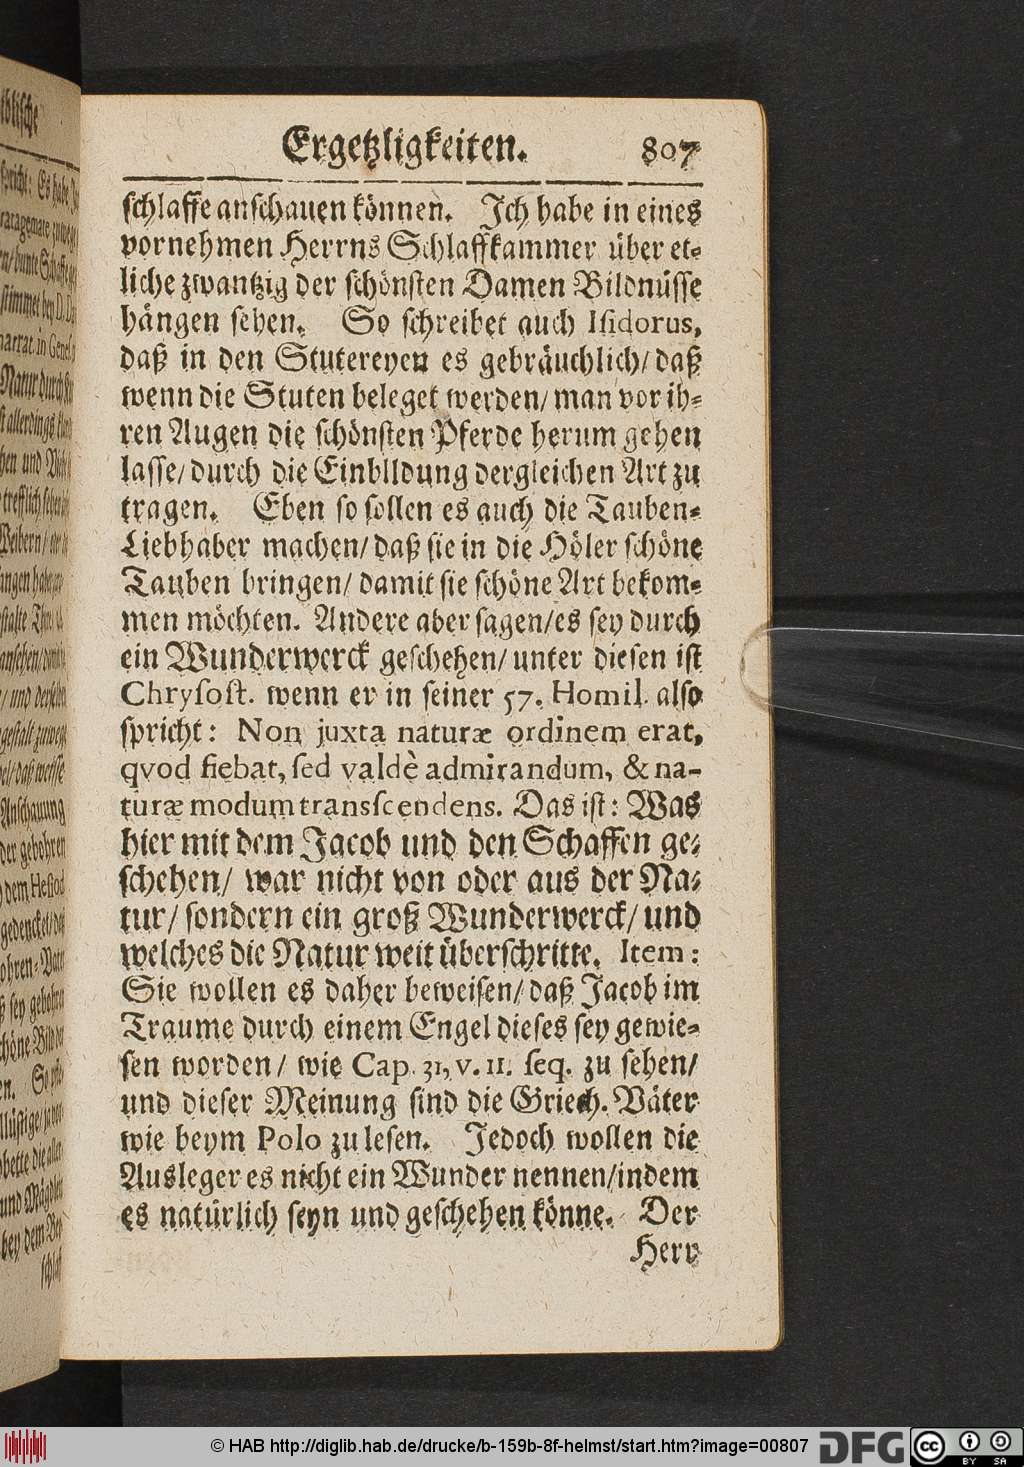 Ergetzligkeiten. 807
schlaffe anschauen können. Ich habe in eines
vornehmen Herrns Schlaffkammer über et-
liche zwantzig der schönsten Damen Bildnüsse
hängen sehen. So schreibet auch Isidorus,
daß in den Stutereyen es gebräuchlich/ daß
wenn die Stuten beleget werden/ man vor ih-
ren Augen die schönsten Pferde herum gehen
lasse/ durch die Einblldung dergleichen Art zu
tragen. Eben so sollen es auch die Tauben-
Liebhaber machen/ daß sie in die Höler schöne
Tauben bringen/ damit sie schöne Art bekom-
men möchten. Andere aber sagen/ es sey durch
ein Wunderwerck geschehen/ unter diesen ist
Chrysost. wenn er in seiner 57. Homil. also
spricht: Non juxta naturæ ordinem erat,
qvod fiebat, sed valdè admirandum, & na-
turæ modum transscendens. Das ist: Was
hier mit dem Jacob und den Schaffen ge-
schehen/ war nicht von oder aus der Na-
tur/ sondern ein groß Wunderwerck/ und
welches die Natur weit überschritte. Item:
Sie wollen es daher beweisen/ daß Jacob im
Traume durch einem Engel dieses sey gewie-
sen worden/ wie Cap. 31, v. 11. seq. zu sehen/
und dieser Meinung sind die Griech. Väter
wie beym Polo zu lesen. Jedoch wollen die
Ausleger es nicht ein Wunder nennen/ indem
es natürlich seyn und geschehen könne. Der
Herr
© HAB http://diglib.hab.de/drucke/b-159b-8f-helmst/start.htm?image=00807 DFG cc BY SA